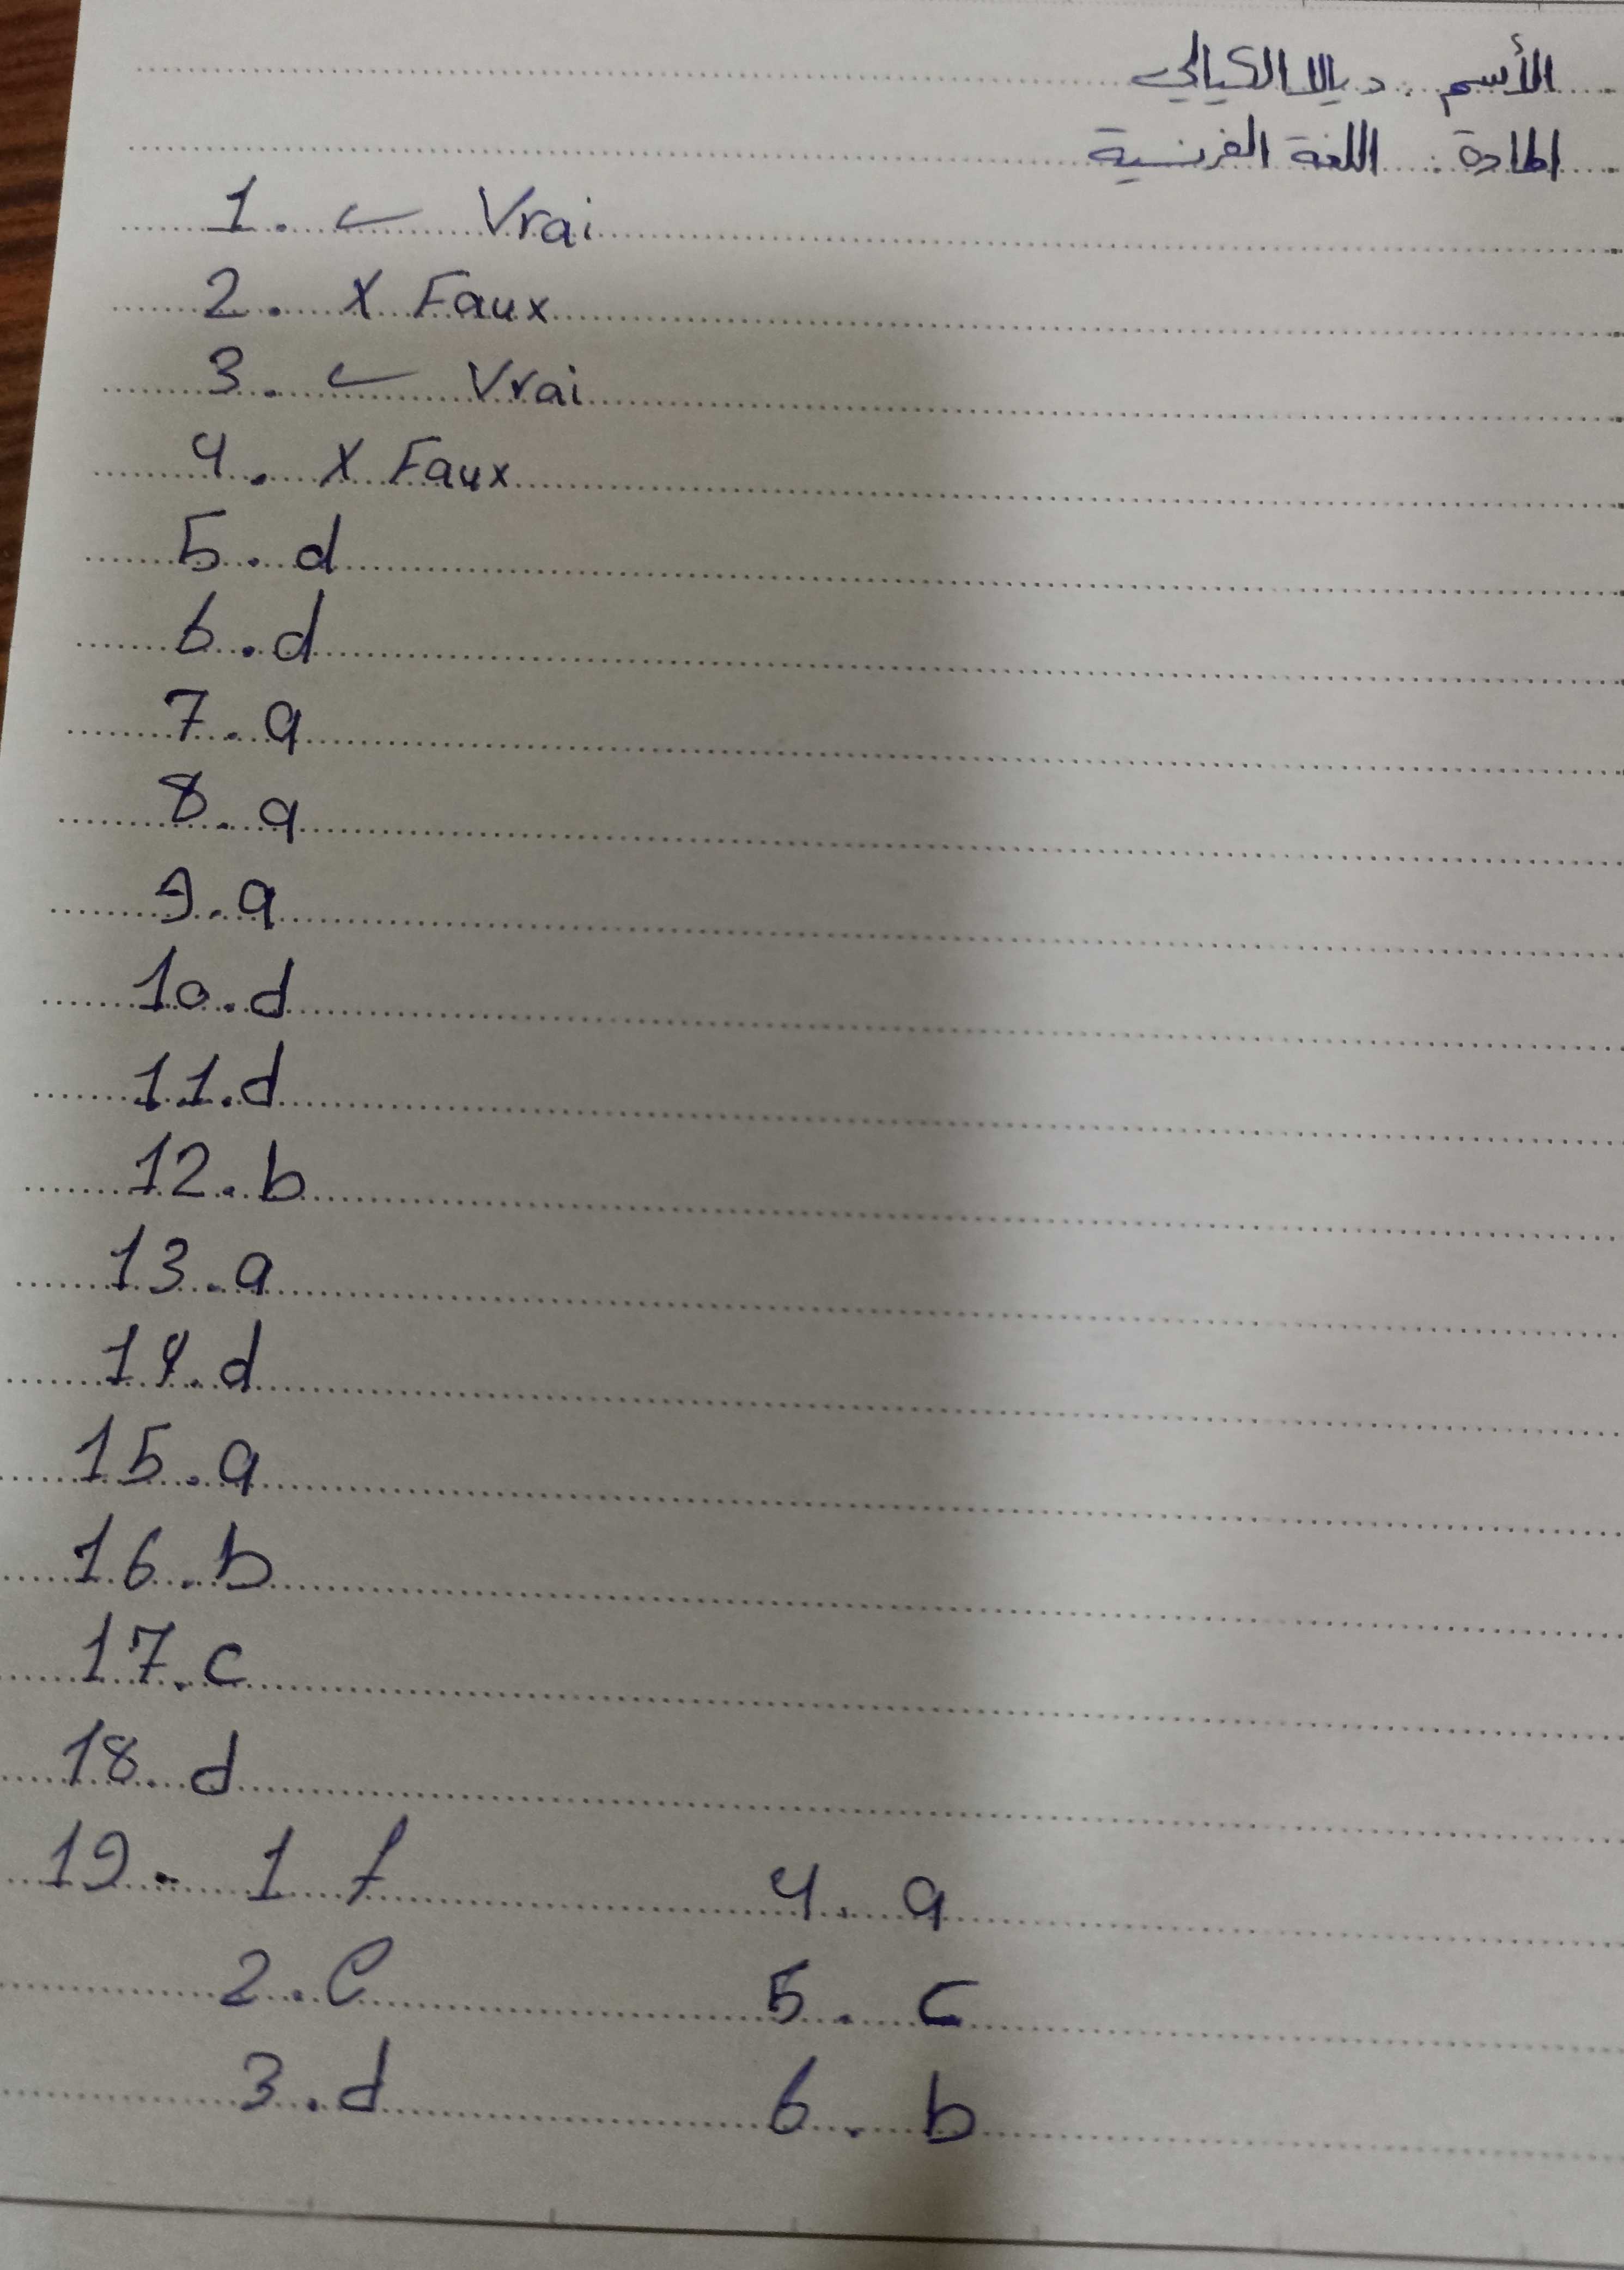 الأسم : ديالا الكيالي
المادة : اللغة الفرنسية
1. ✓ Vrai
2. X Faux
3. ✓ Vrai
4. X Faux
5. d
6. d
7. a
8. a
9. a
10. d
11. d
12. b
13. a
14. d
15. a
16. b
17. c
18. d
19. 1 f 4. a
2. e 5. c
3. d 6. b